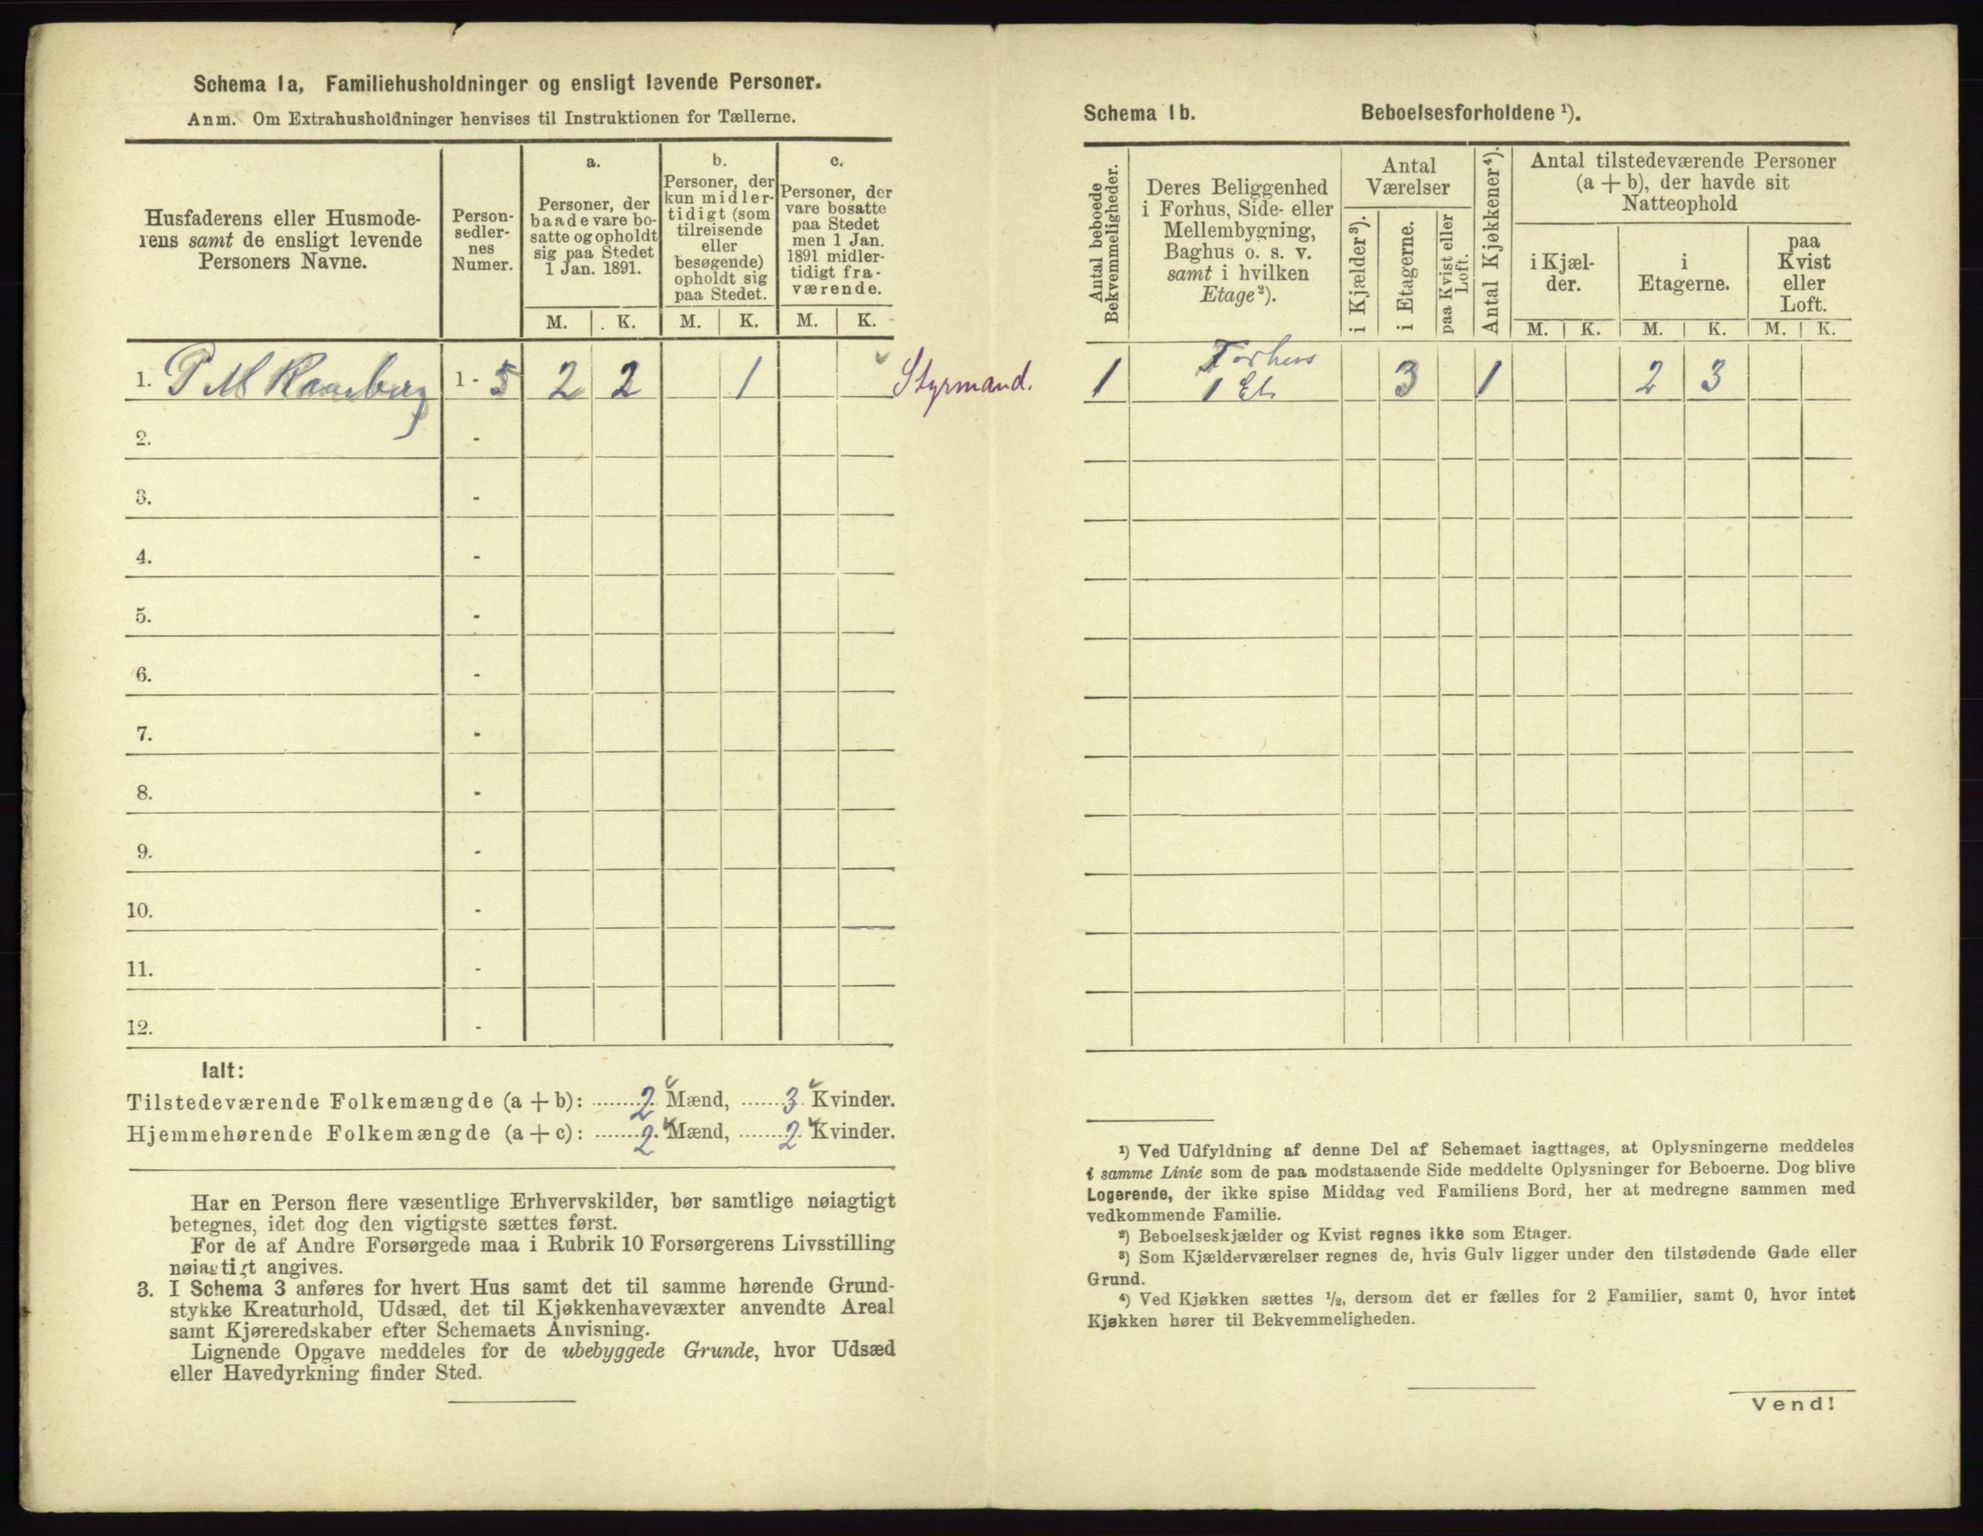 Schema 1a, Familiehusholdninger og ensligt levende Personer.
Anm. Om Extrahusholdninger henvises til Instruktionen for Tællerne.
Husfaderens eller Husmode-
rens samt de ensligt levende
Personers Navne.
Person-
sedler-
nes
Numer.
a.
Personer, der
baade vare bo-
satte og opholdt
sig paa Stedet
1 Jan. 1891.
b.
Personer, der
kun midler-
tidigt (som
tilreisende
eller
besøgende)
opholdt sig
paa Stedet.
c.
Personer, der
vare bosatte
paa Stedet
men 1 Jan.
1891 midler-
tidigt fra-
værende.
M. K. M. K. M. K.
1. P M 1 - 5 2 2 1 Styrmand.
2. -
3. -
4. -
5. -
6. -
7. -
8. -
9. -
10. -
11. -
12. -
Ialt:
Tilstedeværende Folkemængde (a + b): 2 Mænd, 3 Kvinder.
Hjemmehørende Folkemængde (a + c): 2 Mænd, 2 Kvinder.
Har en Person flere væsentlige Erhvervskilder, bør samtlige nøiagtigt
betegnes, idet dog den vigtigste sættes først.
For de af Andre Forsørgede maa i Rubrik 10 Forsørgerens Livsstilling
nøiagtigt angives.
3. I Schema 3 anføres for hvert Hus samt det til samme hørende Grund-
stykke Kreaturhold, Udsæd, det til Kjøkkenhavevæxter anvendte Areal
samt Kjøreredskaber efter Schemaets Anvisning.
Lignende Opgave meddeles for de ubebyggede Grunde, hvor Udsæd
eller Havedyrkning finder Sted.
Schema 1b. Beboelsesforholdene ¹).
Antal beboede
Bekvemmeligheder.
Deres Beliggenhed
i Forhus, Side- eller
Mellembygning,
Baghus o. s. v.
samt i hvilken
Etage ²).
Antal
Værelser
i Kjælder ³).
i Etagerne.
paa Kvist eller
Loft.
Antal Kjøkkener ⁴).
Antal tilstedeværende Personer
(a + b), der havde sit
Natteophold
i Kjæl-
der.
i
Etagerne.
paa
Kvist
eller
Loft.
M. K. M. K. M. K.
1 Forhus
1 Et. 3 1 2 3
¹) Ved Udfyldning af denne Del af Schemaet iagttages, at Oplysningerne meddeles
i samme Linie som de paa modstaaende Side meddelte Oplysninger for Beboerne. Dog blive
Logerende, der ikke spise Middag ved Familiens Bord, her at medregne sammen med
vedkommende Familie.
²) Beboelseskjælder og Kvist regnes ikke som Etager.
³) Som Kjælderværelser regnes de, hvis Gulv ligger under den tilstødende Gade eller
Grund.
⁴) Ved Kjøkken sættes ½, dersom det er fælles for 2 Familier, samt 0, hvor intet
Kjøkken hører til Bekvemmeligheden.
Vend!